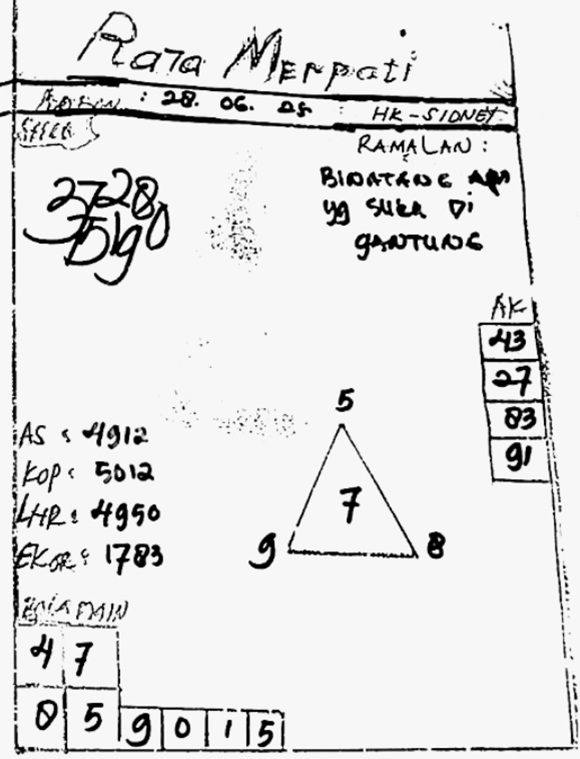 Raja Merpati
: 28. 06. 25 HK-SIDNEY
RAMALAN:
BINATANG APA
yg SUKA DI
GANTUNG
2728
AK
43
27
83
91
AS : 4912
KOP : 5012
LHR : 4950
EKOR : 1783
5
7
9 8
4 7
0 5 9 0 1 5